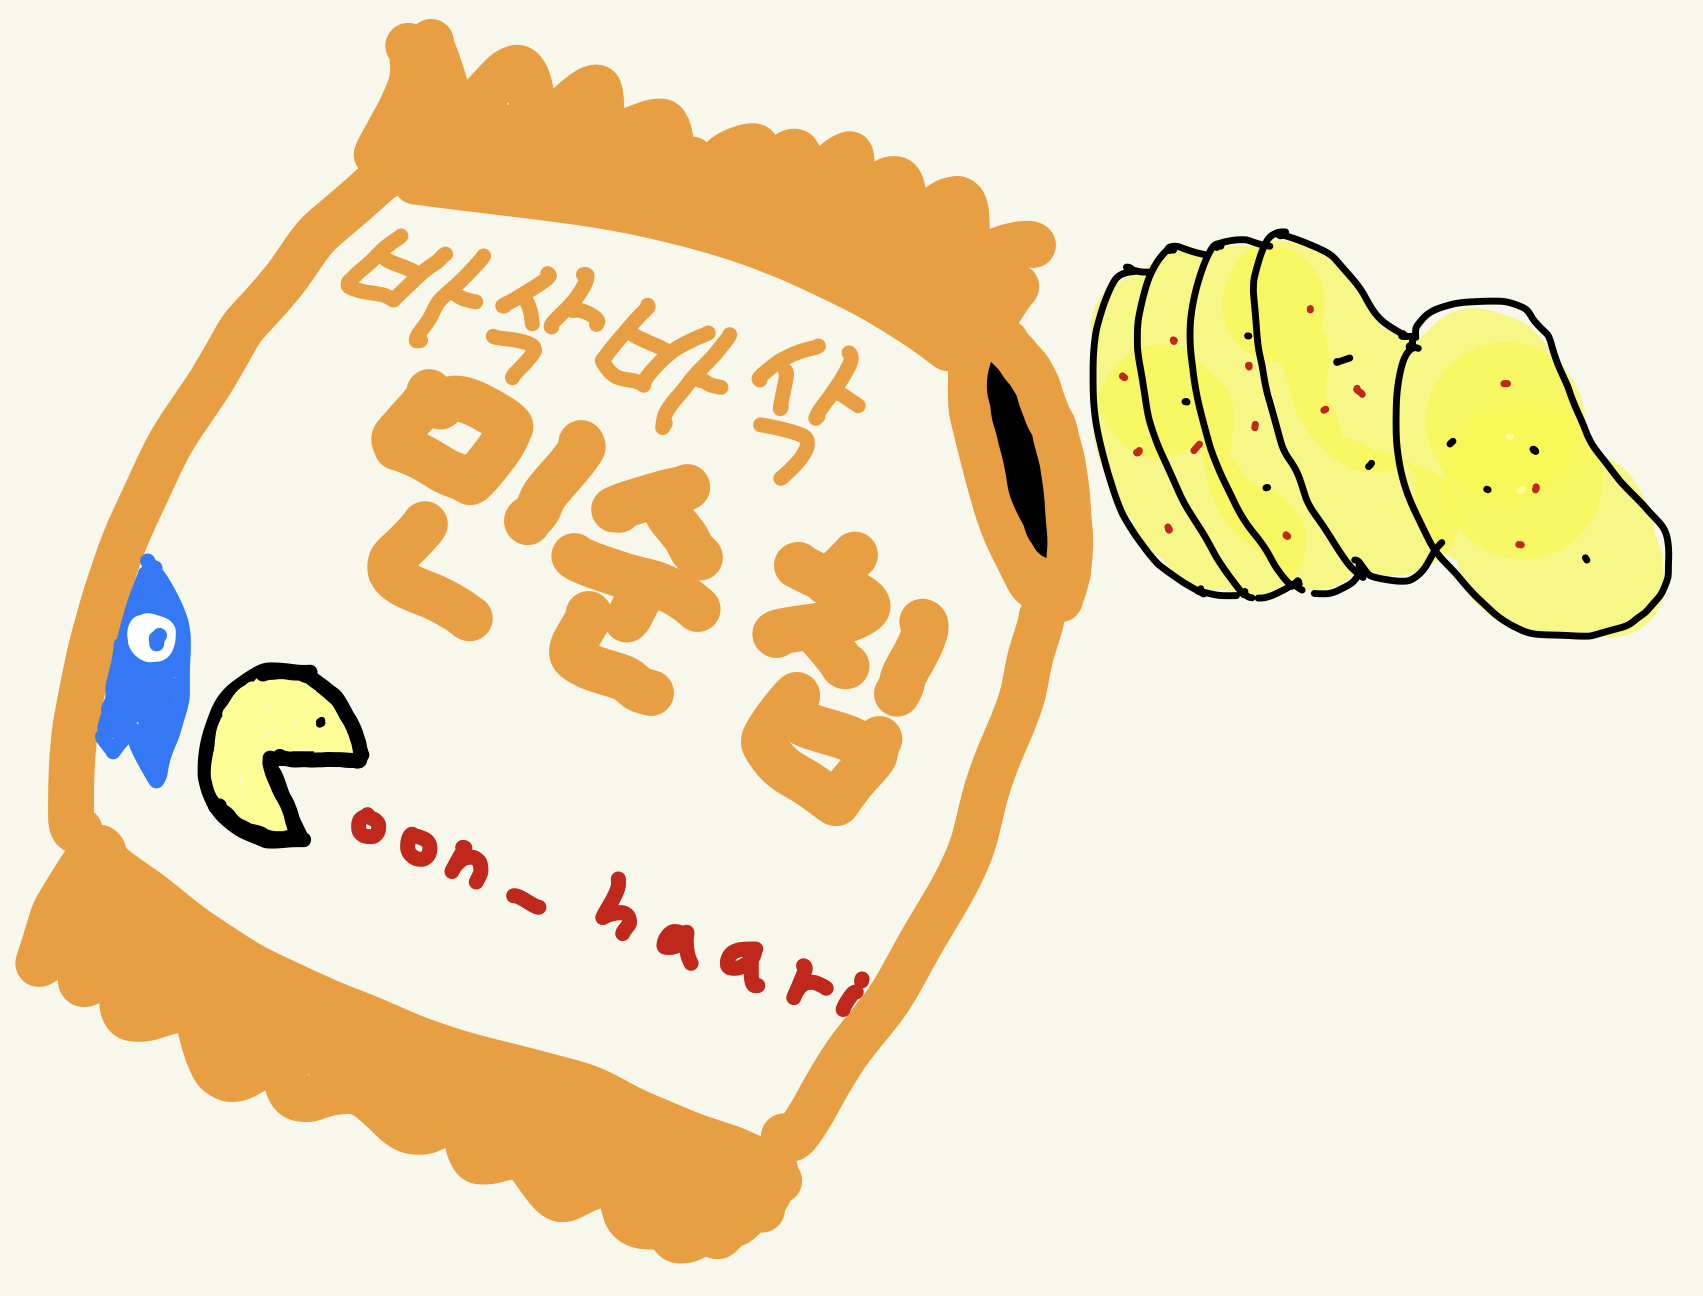 바삭바삭
민순칩
oon_haari